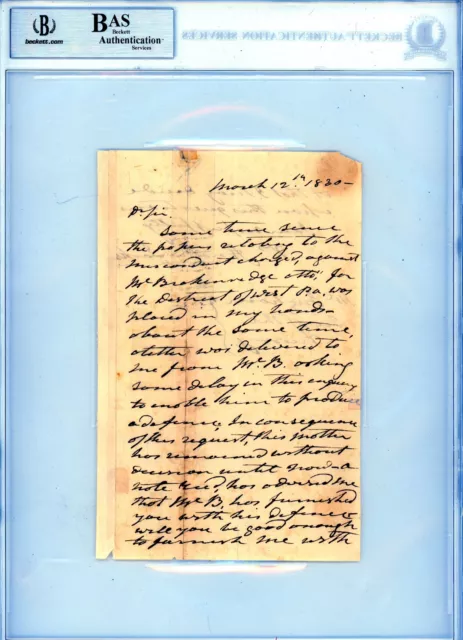 BAS
Beckett
Authentication
Services
beckett.com
BECKETT AUTHENTICATION SERVICES
March 12th 1830—
Dr Sir.
Some time since
the papers relating to the
misconduct charged, against
Mr Brekenredge atto. for
the District of West Pa. was
placed in my hands—
about the same time,
a letter was delivered to
me from Mr. B. asking
some delay in this enquiry
to enable him to produce
a defence, In consequence
of this request, this matter
has remained without
decision until now—a
note Recd, has advised me
that Mr B. has furnished
you with his defence
will you be good enough
to furnish me with